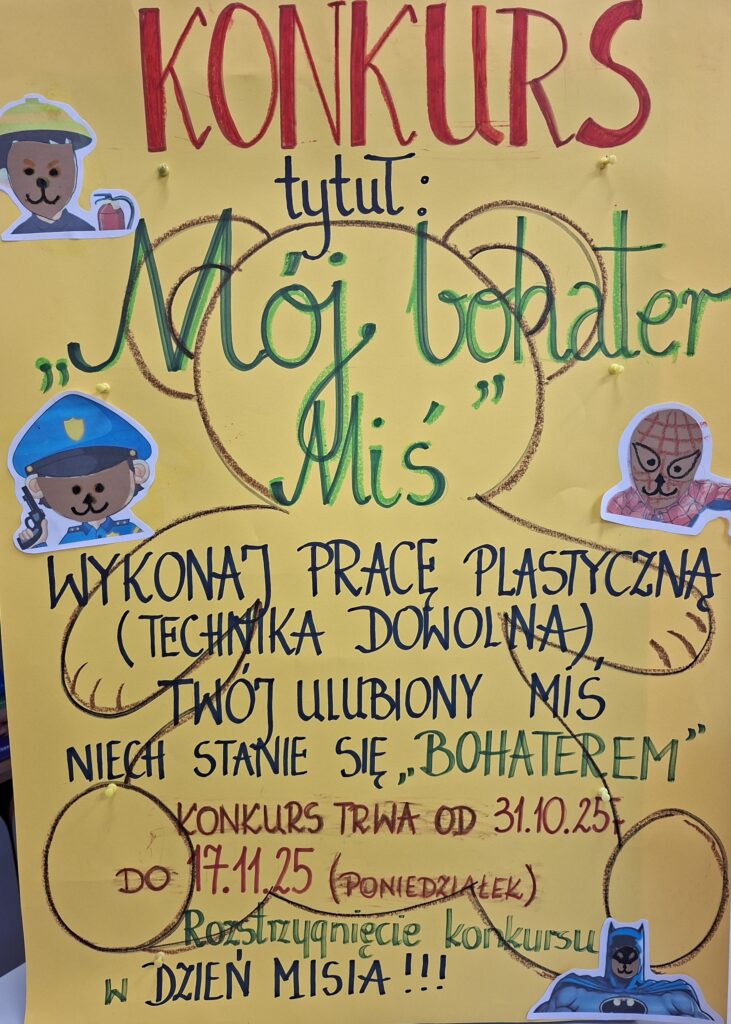 KONKURS
tytuł:
„Mój bohater
Miś”
WYKONAJ PRACĘ PLASTYCZNĄ
(TECHNIKA DOWOLNA),
TWÓJ ULUBIONY MIŚ
NIECH STANIE SIĘ „BOHATEREM”
KONKURS TRWA OD 31.10.25r
DO 17.11.25 (PONIEDZIAŁEK)
Rozstrzygnięcie konkursu
w DZIEŃ MISIA!!!